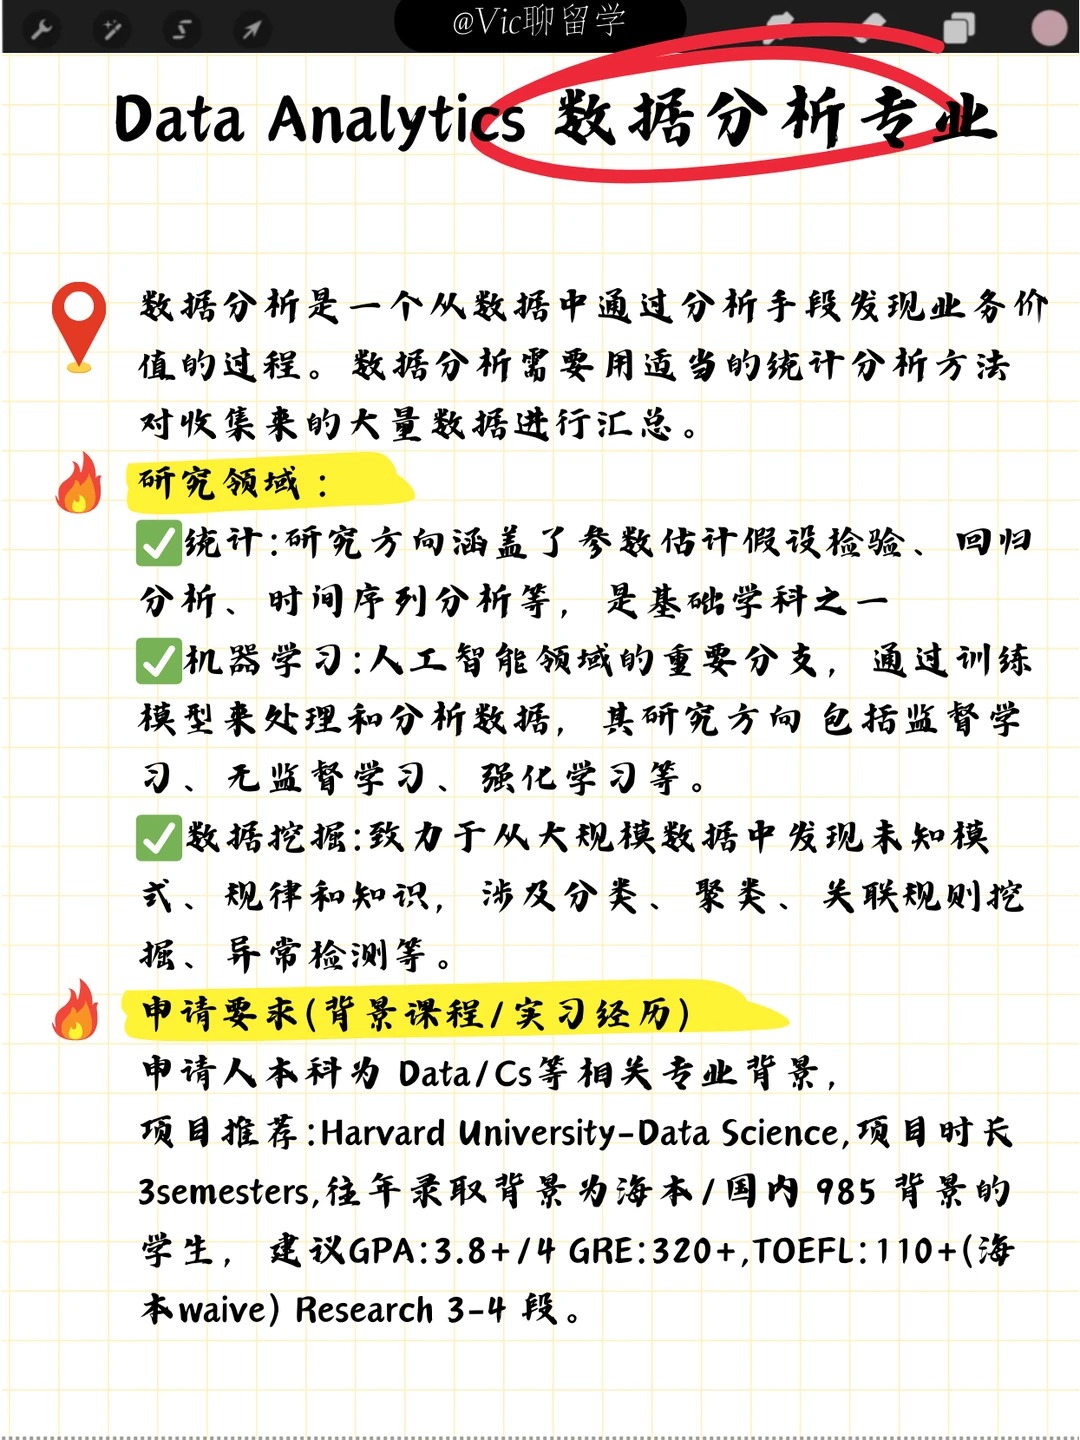 @Vic聊留学
Data Analytics 数据分析专业
数据分析是一个从数据中通过分析手段发现业务价
值的过程。数据分析需要用适当的统计分析方法
对收集来的大量数据进行汇总。
研究领域：
✅统计:研究方向涵盖了参数估计假设检验、回归
分析、时间序列分析等，是基础学科之一
✅机器学习:人工智能领域的重要分支，通过训练
模型来处理和分析数据，其研究方向 包括监督学
习、无监督学习、强化学习等。
✅数据挖掘:致力于从大规模数据中发现未知模
式、规律和知识，涉及分类、聚类、关联规则挖
掘、异常检测等。
申请要求(背景课程/实习经历)
申请人本科为 Data/Cs等相关专业背景，
项目推荐:Harvard University-Data Science,项目时长
3semesters,往年录取背景为海本/国内 985 背景的
学生， 建议GPA:3.8+/4 GRE:320+,TOEFL:110+(海
本waive) Research 3-4 段。